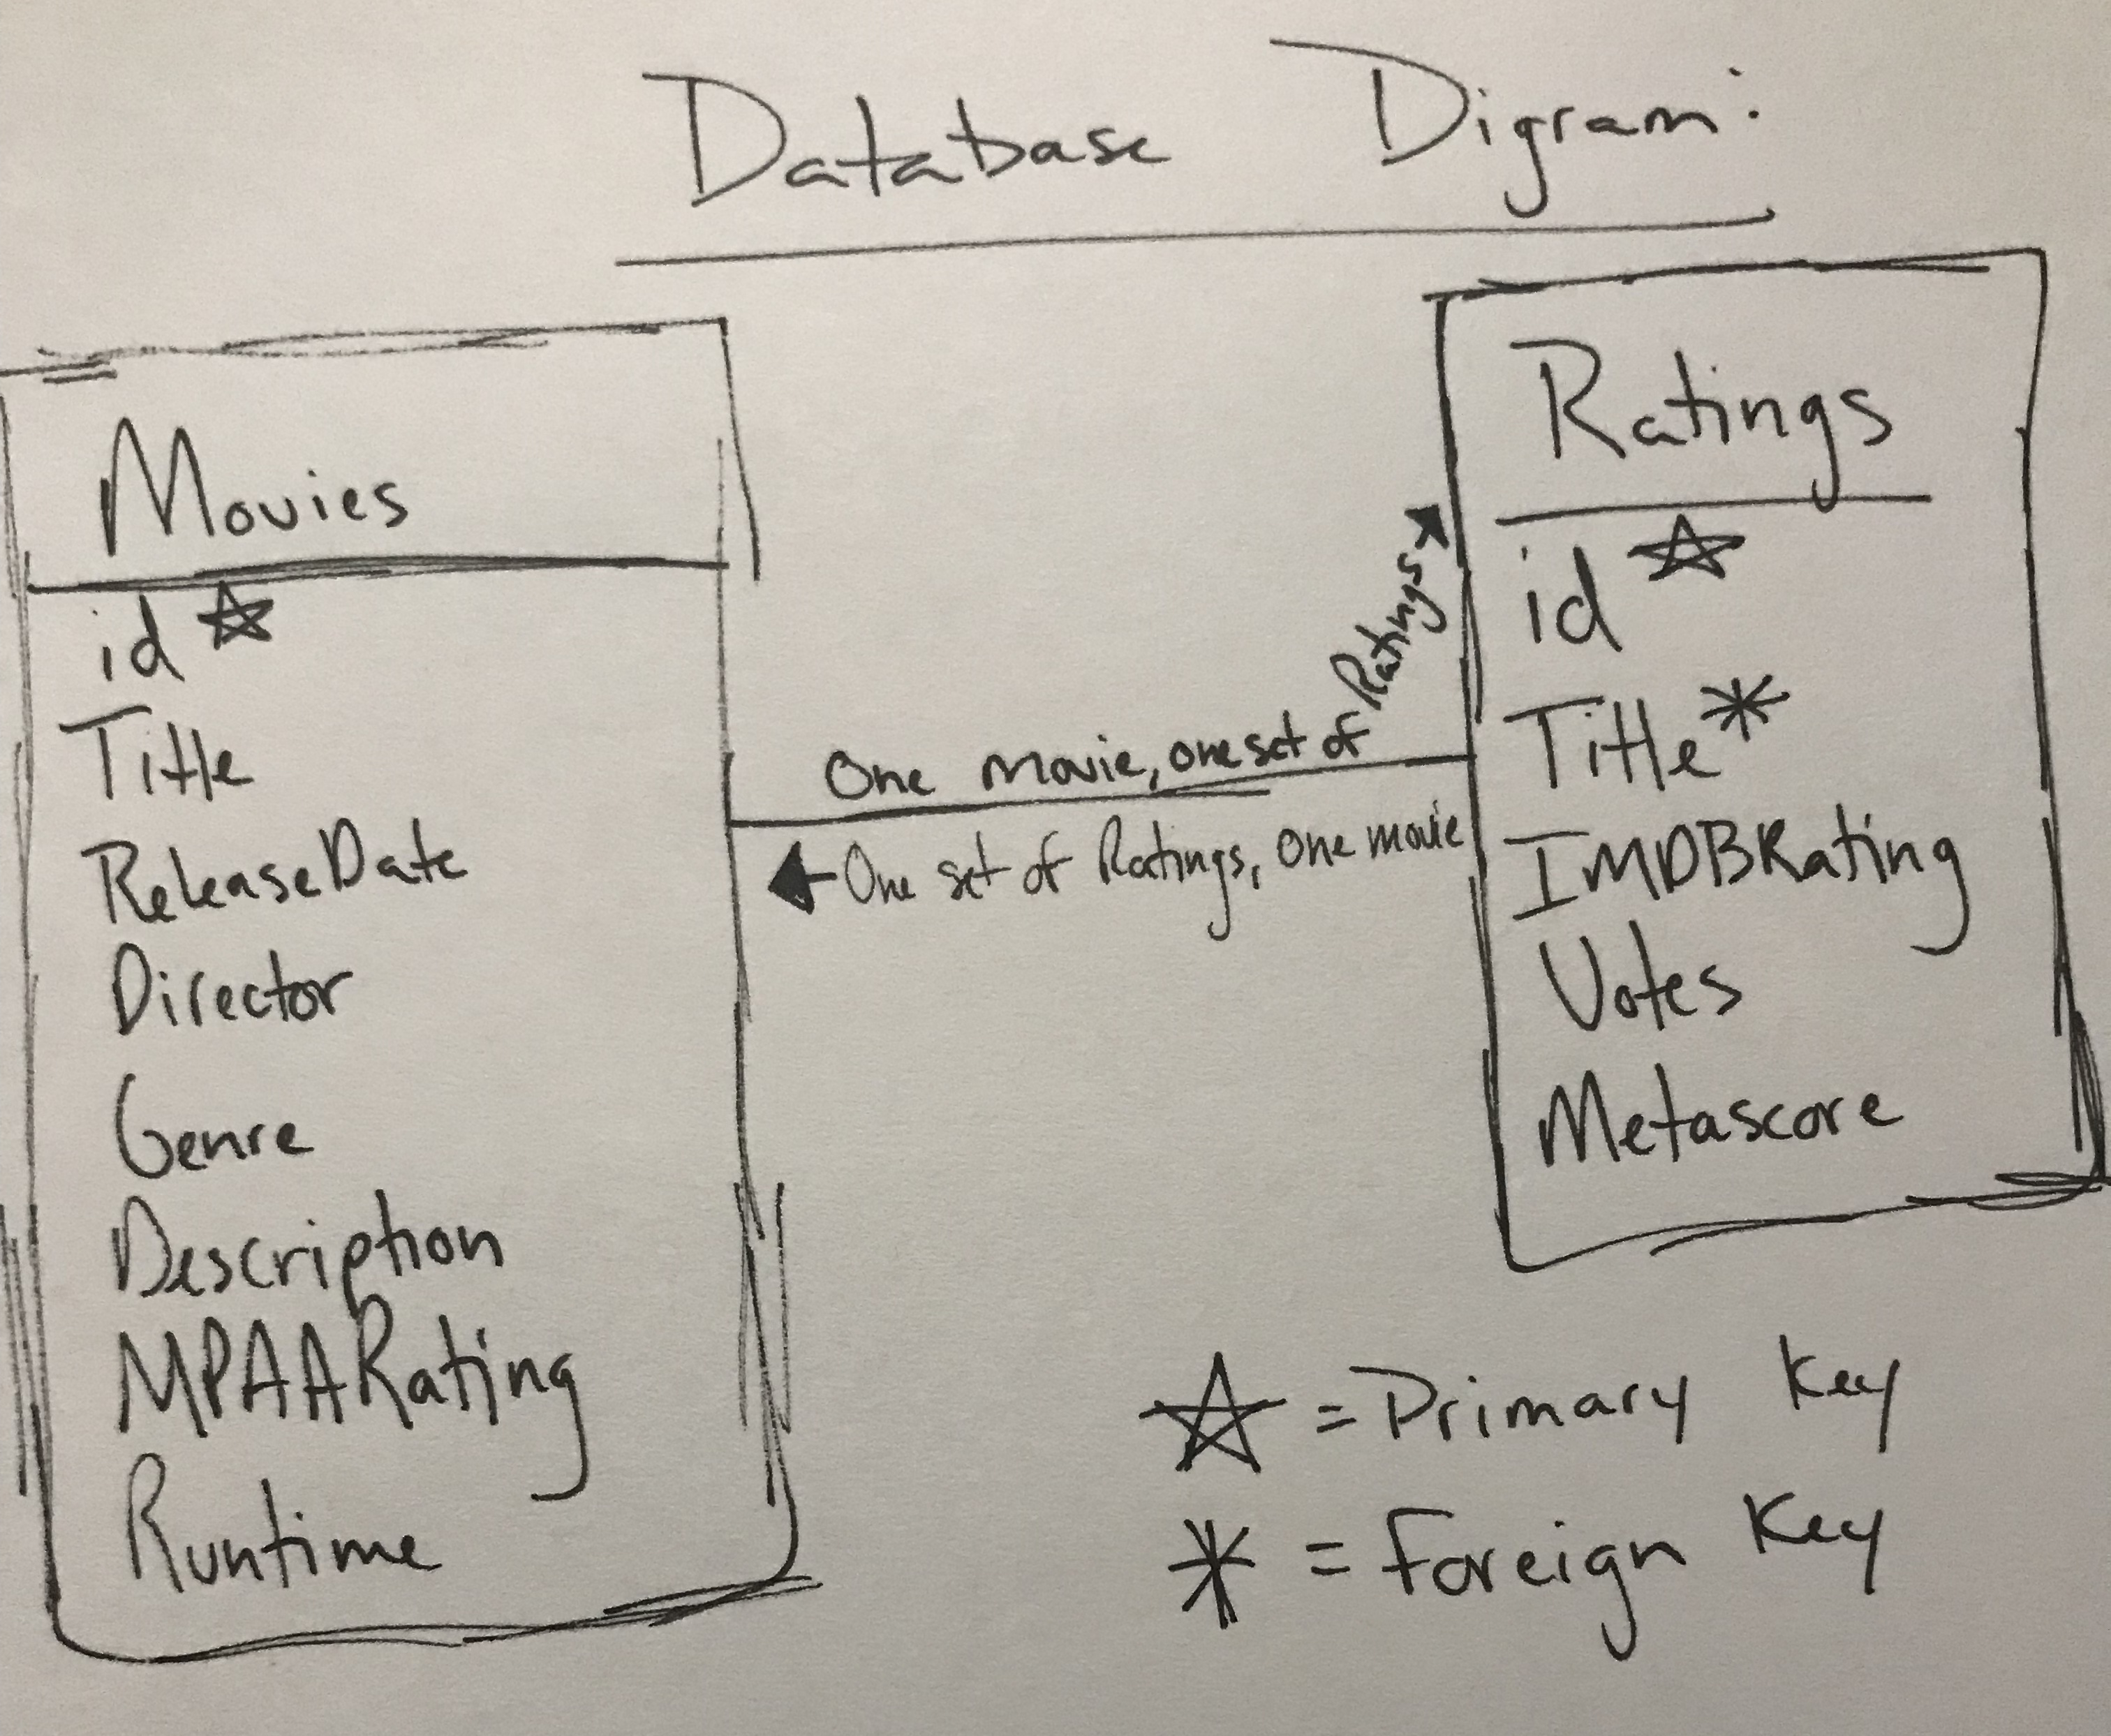 Database Digram:
Movies
id
Title
ReleaseDate
Director
Genre
Description
MPAARating
Runtime
One movie, one set of Ratings
One set of Ratings, One movie
Ratings
id
Title*
IMDBRating
Votes
Metascore
☆ = Primary Key
* = Foreign Key